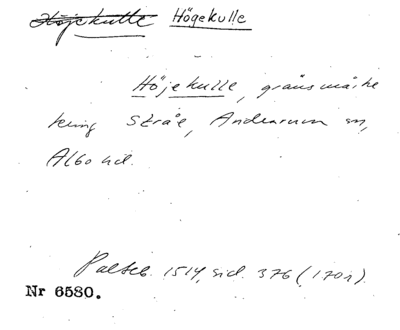 Höjekulle Högekulle
Höjekulle, gränsmärke
kring Stråe, Andrarum sn,
Albo hd.
Palteb. 1514, sid. 376 (170r).
Nr 6580.